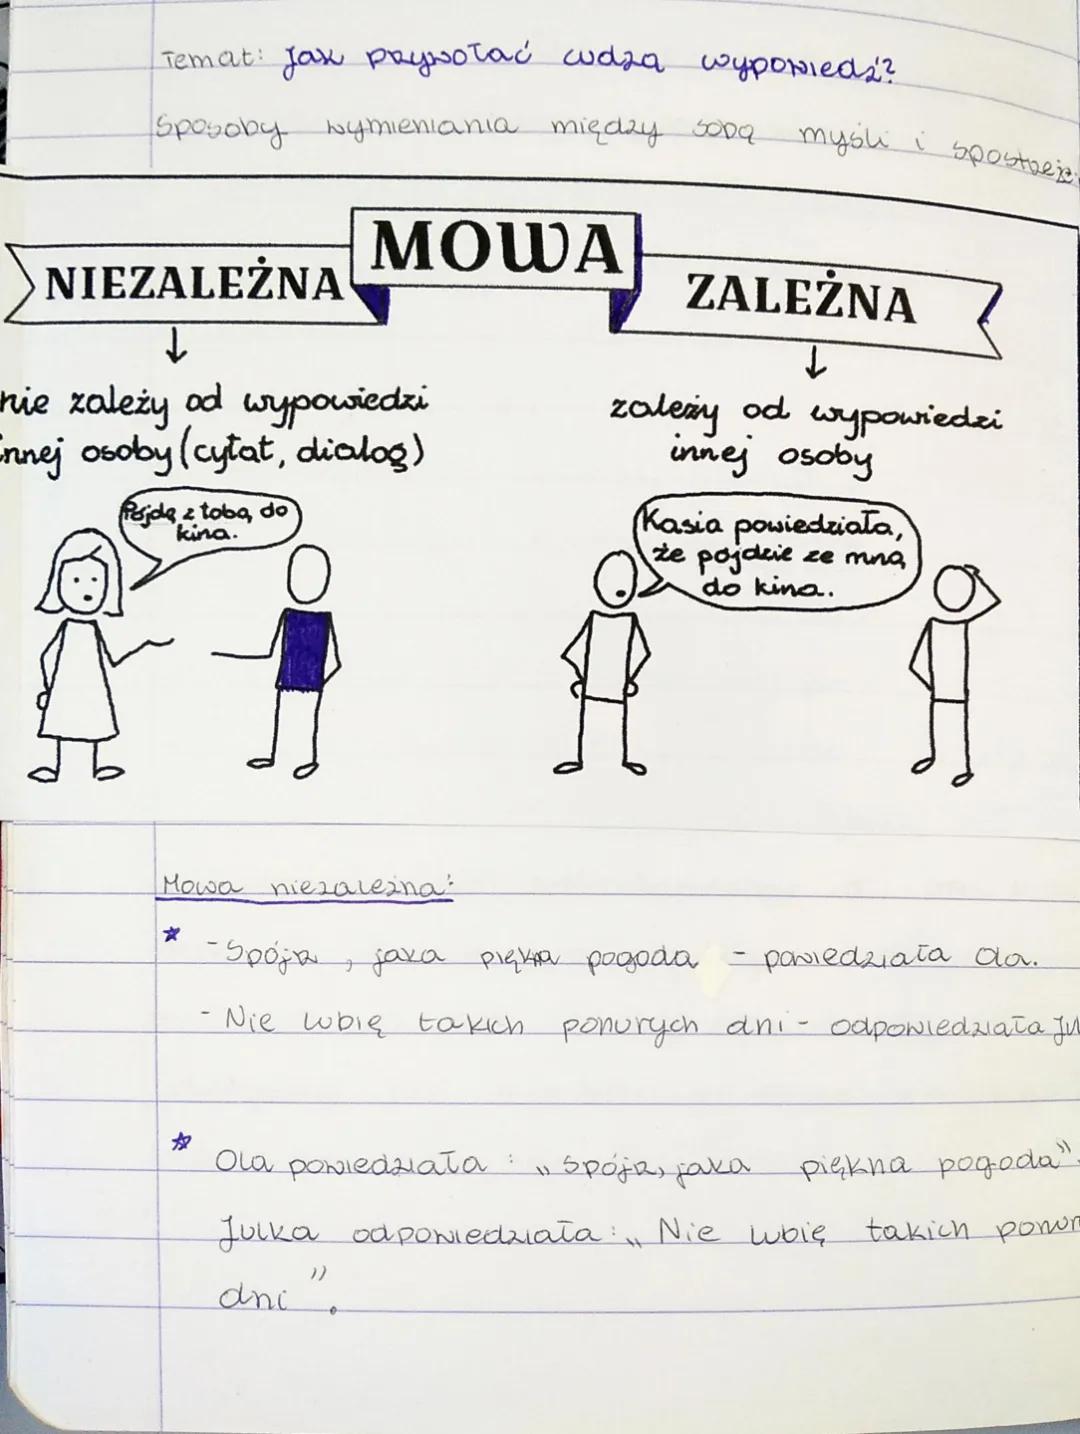 Temat: Jak przywołać cudzą wypowiedź?
Sposoby wymieniania między sobą myśli i spostrzeż
MOWA
NIEZALEŻNA
ZALEŻNA
nie zależy od wypowiedzi
innej osoby (cytat, dialog)
zależy od wypowiedzi
innej osoby
Pójdę z tobą do
kina.
Kasia powiedziała,
że pójdzie ze mną
do kina.
Mowa niezależna:
- Spójrz, jaka piękna pogoda - powiedziała Ola.
- Nie lubię takich ponurych dni - odpowiedziała Jul
Ola powiedziała: „Spójrz, jaka piękna pogoda".
Julka odpowiedziała: „Nie lubię takich ponur
dni".